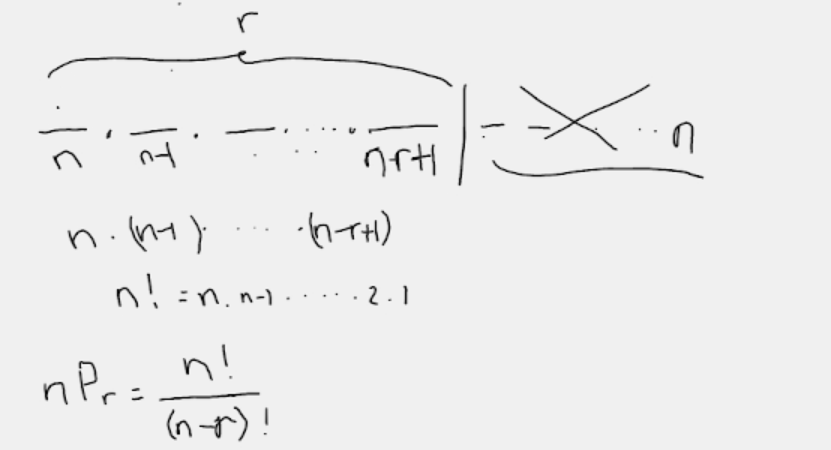 r
n · n-1 · ..... n-r+1 | - - .. n
n · (n-1) · .... · (n-r+1)
n! = n . n-1 ...... 2 . 1
nPr = n! / (n-r)!